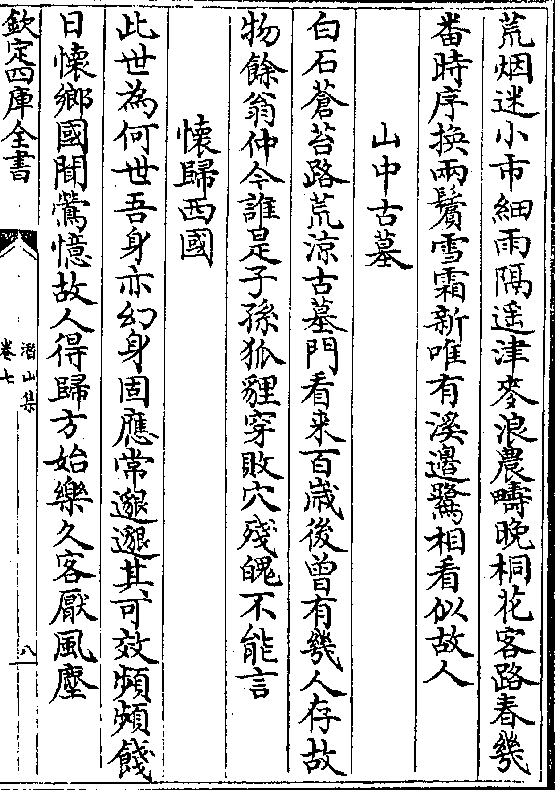 荒烟迷小市細雨隔遥津麥浪農疇晚桐花客路春幾
番時序換兩鬢雪霜新唯有溪邉鷺相看似故人
山中古墓
白石蒼苔路荒凉古墓門看来百歲後曾有幾人存故
物餘翁仲今誰是子孫狐貍穿敗穴殘魄不能言
懷歸西國
此世為何世吾身亦幻身固應常邈邈其可效頻頻餞
日懷鄉國聞鶯憶故人得歸方始樂久客厭風塵
欽定四庫全書
潛山集
卷七
八